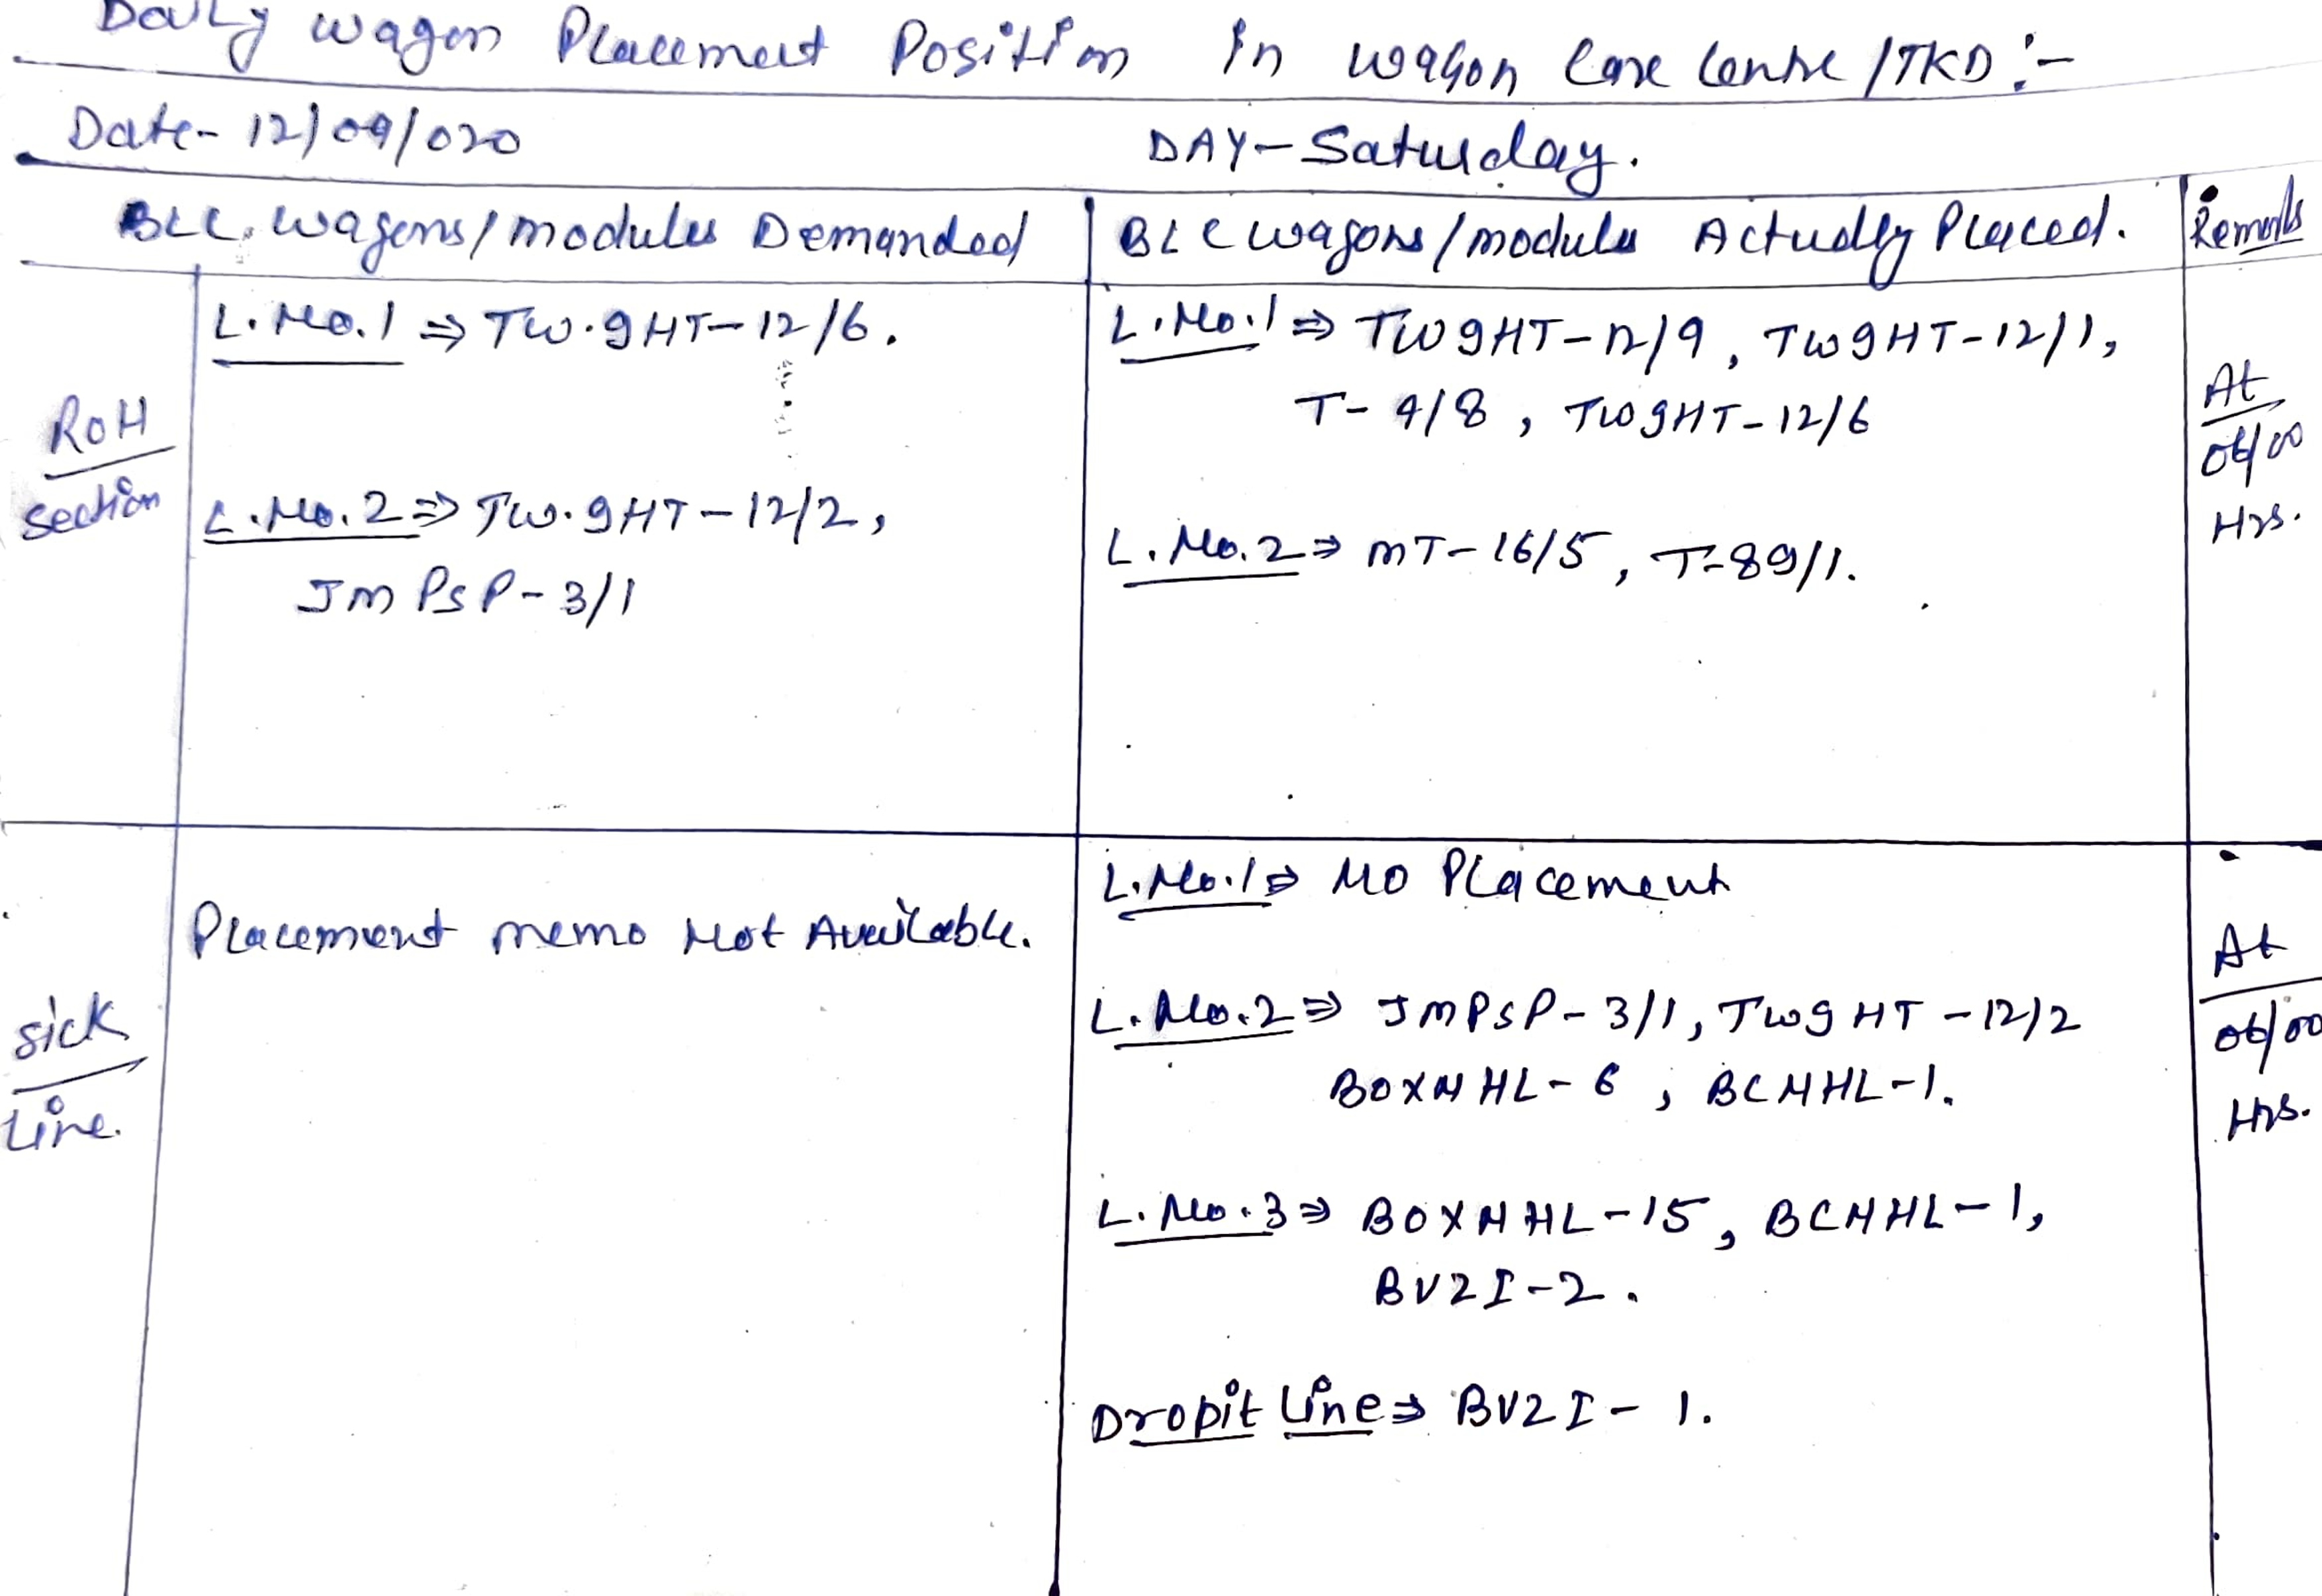 Daily Wagon Placement Position in Wagon Care Centre/TKD:-
Date- 12/09/020 DAY- Saturday.
BLC. Wagons/modules Demanded BLC wagons/modules Actually Placed. Remarks
ROH
Section
L.No.1 ⇒ TW.9HT-12/6.
L.No.2 ⇒ TW.9HT-12/2,
JMPSP-3/1
L.No.1 ⇒ TW9HT-12/9, TW9HT-12/1,
T-4/8, TW9HT-12/6
L.No.2 ⇒ MT-16/5, T-89/1.
At
06/00
Hrs.
Sick
Line.
Placement memo Not Available.
L.No.1 ⇒ NO Placement
L.No.2 ⇒ JMPSP-3/1, TW9HT-12/2
BOXNHL-6, BCNHL-1.
L.No.3 ⇒ BOXNHL-15, BCNHL-1,
BV2I-2.
Dropit Line ⇒ BV2I-1.
At
06/00
Hrs.